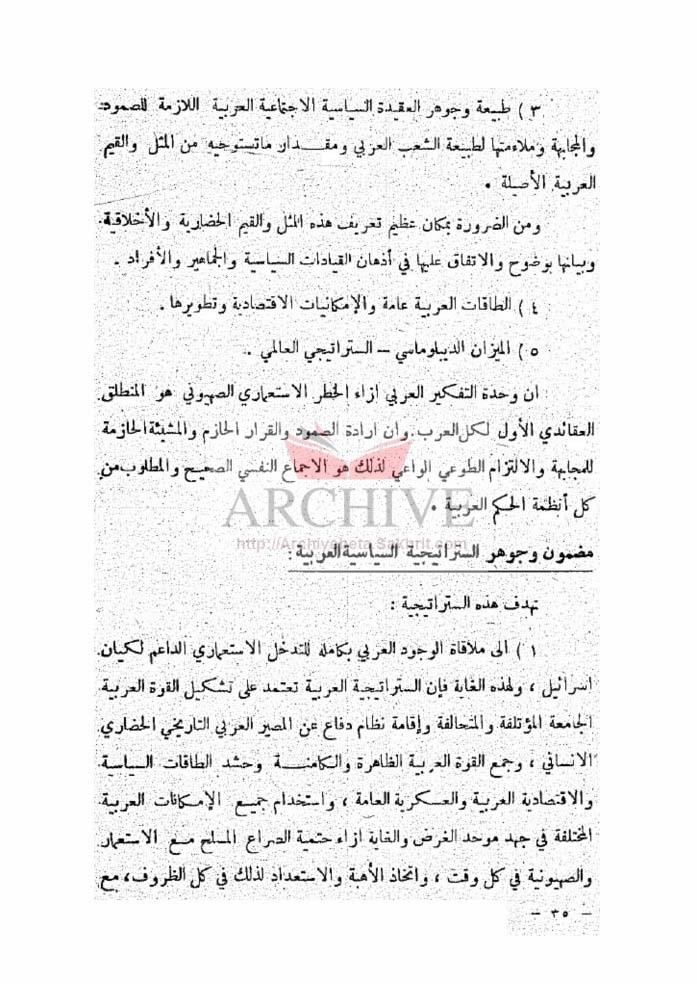 ٣ ) طبيعة وجوهر العقيدة السياسية الاجتماعية العربية اللازمة للصمود
والمجابهة وملاءمتها لطبيعة الشعب العربي ومقدار ماتستوحيه من المثل والقيم
العربية الأصيلة .
ومن الضرورة بمكان عظيم تعريف هذه المثل والقيم الحضارية والأخلاقية
وبيانها بوضوح والاتفاق عليها في أذهان القيادات السياسية والجماهير والأفراد .
٤ ) الطاقات العربية عامة والإمكانيات الاقتصادية وتطويرها .
٥ ) الميزان الديبلوماسي – الستراتيجي العالمي .
ان وحدة التفكير العربي ازاء الخطر الاستعماري الصهيوني هو المنطلق
العقائدي الأول لكل العرب . وان ارادة الصمود والقرار الحازم والمشيئة الحازمة
للمجابهة والالتزام الطوعي الواعي لذلك هو الاجماع النفسي الصحيح والمطلوب من
كل أنظمة الحكم العربية .
ARCHIVE
http://Archivebeta.Sakhrit.com
مضمون وجوهر الستراتيجية السياسية العربية :
تهدف هذه الستراتيجية :
١ ) الى ملاقاة الوجود العربي بكامله للتدخل الاستعماري الداعم لكيان
اسرائيل ، ولهذه الغاية فإن الستراتيجية العربية تعتمد على تشكيل القوة العربية
الجامعة المؤتلفة والمتحالفة وإقامة نظام دفاع عن المصير العربي التاريخي الحضاري
الانساني ، وجمع القوة العربية الظاهرة والكامنة وحشد الطاقات السياسية
والاقتصادية العربية والعسكرية العامة ، واستخدام جميع الإمكانات العربية
المختلفة في جهد موحد الغرض والغاية ازاء حتمية الصراع المسلح مع الاستعمار
والصهيونية في كل وقت ، واتخاذ الأهبة والاستعداد لذلك في كل الظروف ، مع
– ٣٥ –